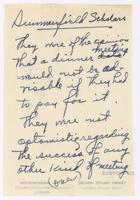 Summerfield Scholars
They were of the opinion
that a dinner meeting
would not be ad-
visable if they had
to pay for it.
They were not
optimistic regarding
the success of any
other kind of meeting